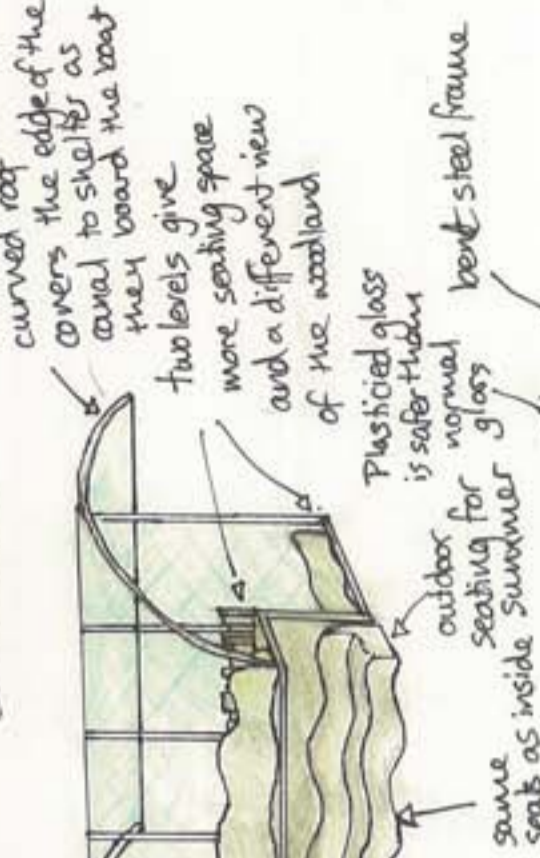 curved roof
covers the edge of the
canal to shelter as
they board the boat
two levels give
more seating space
and a different view
of the woodland
Plasticied glass
is safer than
normal
glass
bent steel frame
outdoor
seating for
summer
same
seats as inside